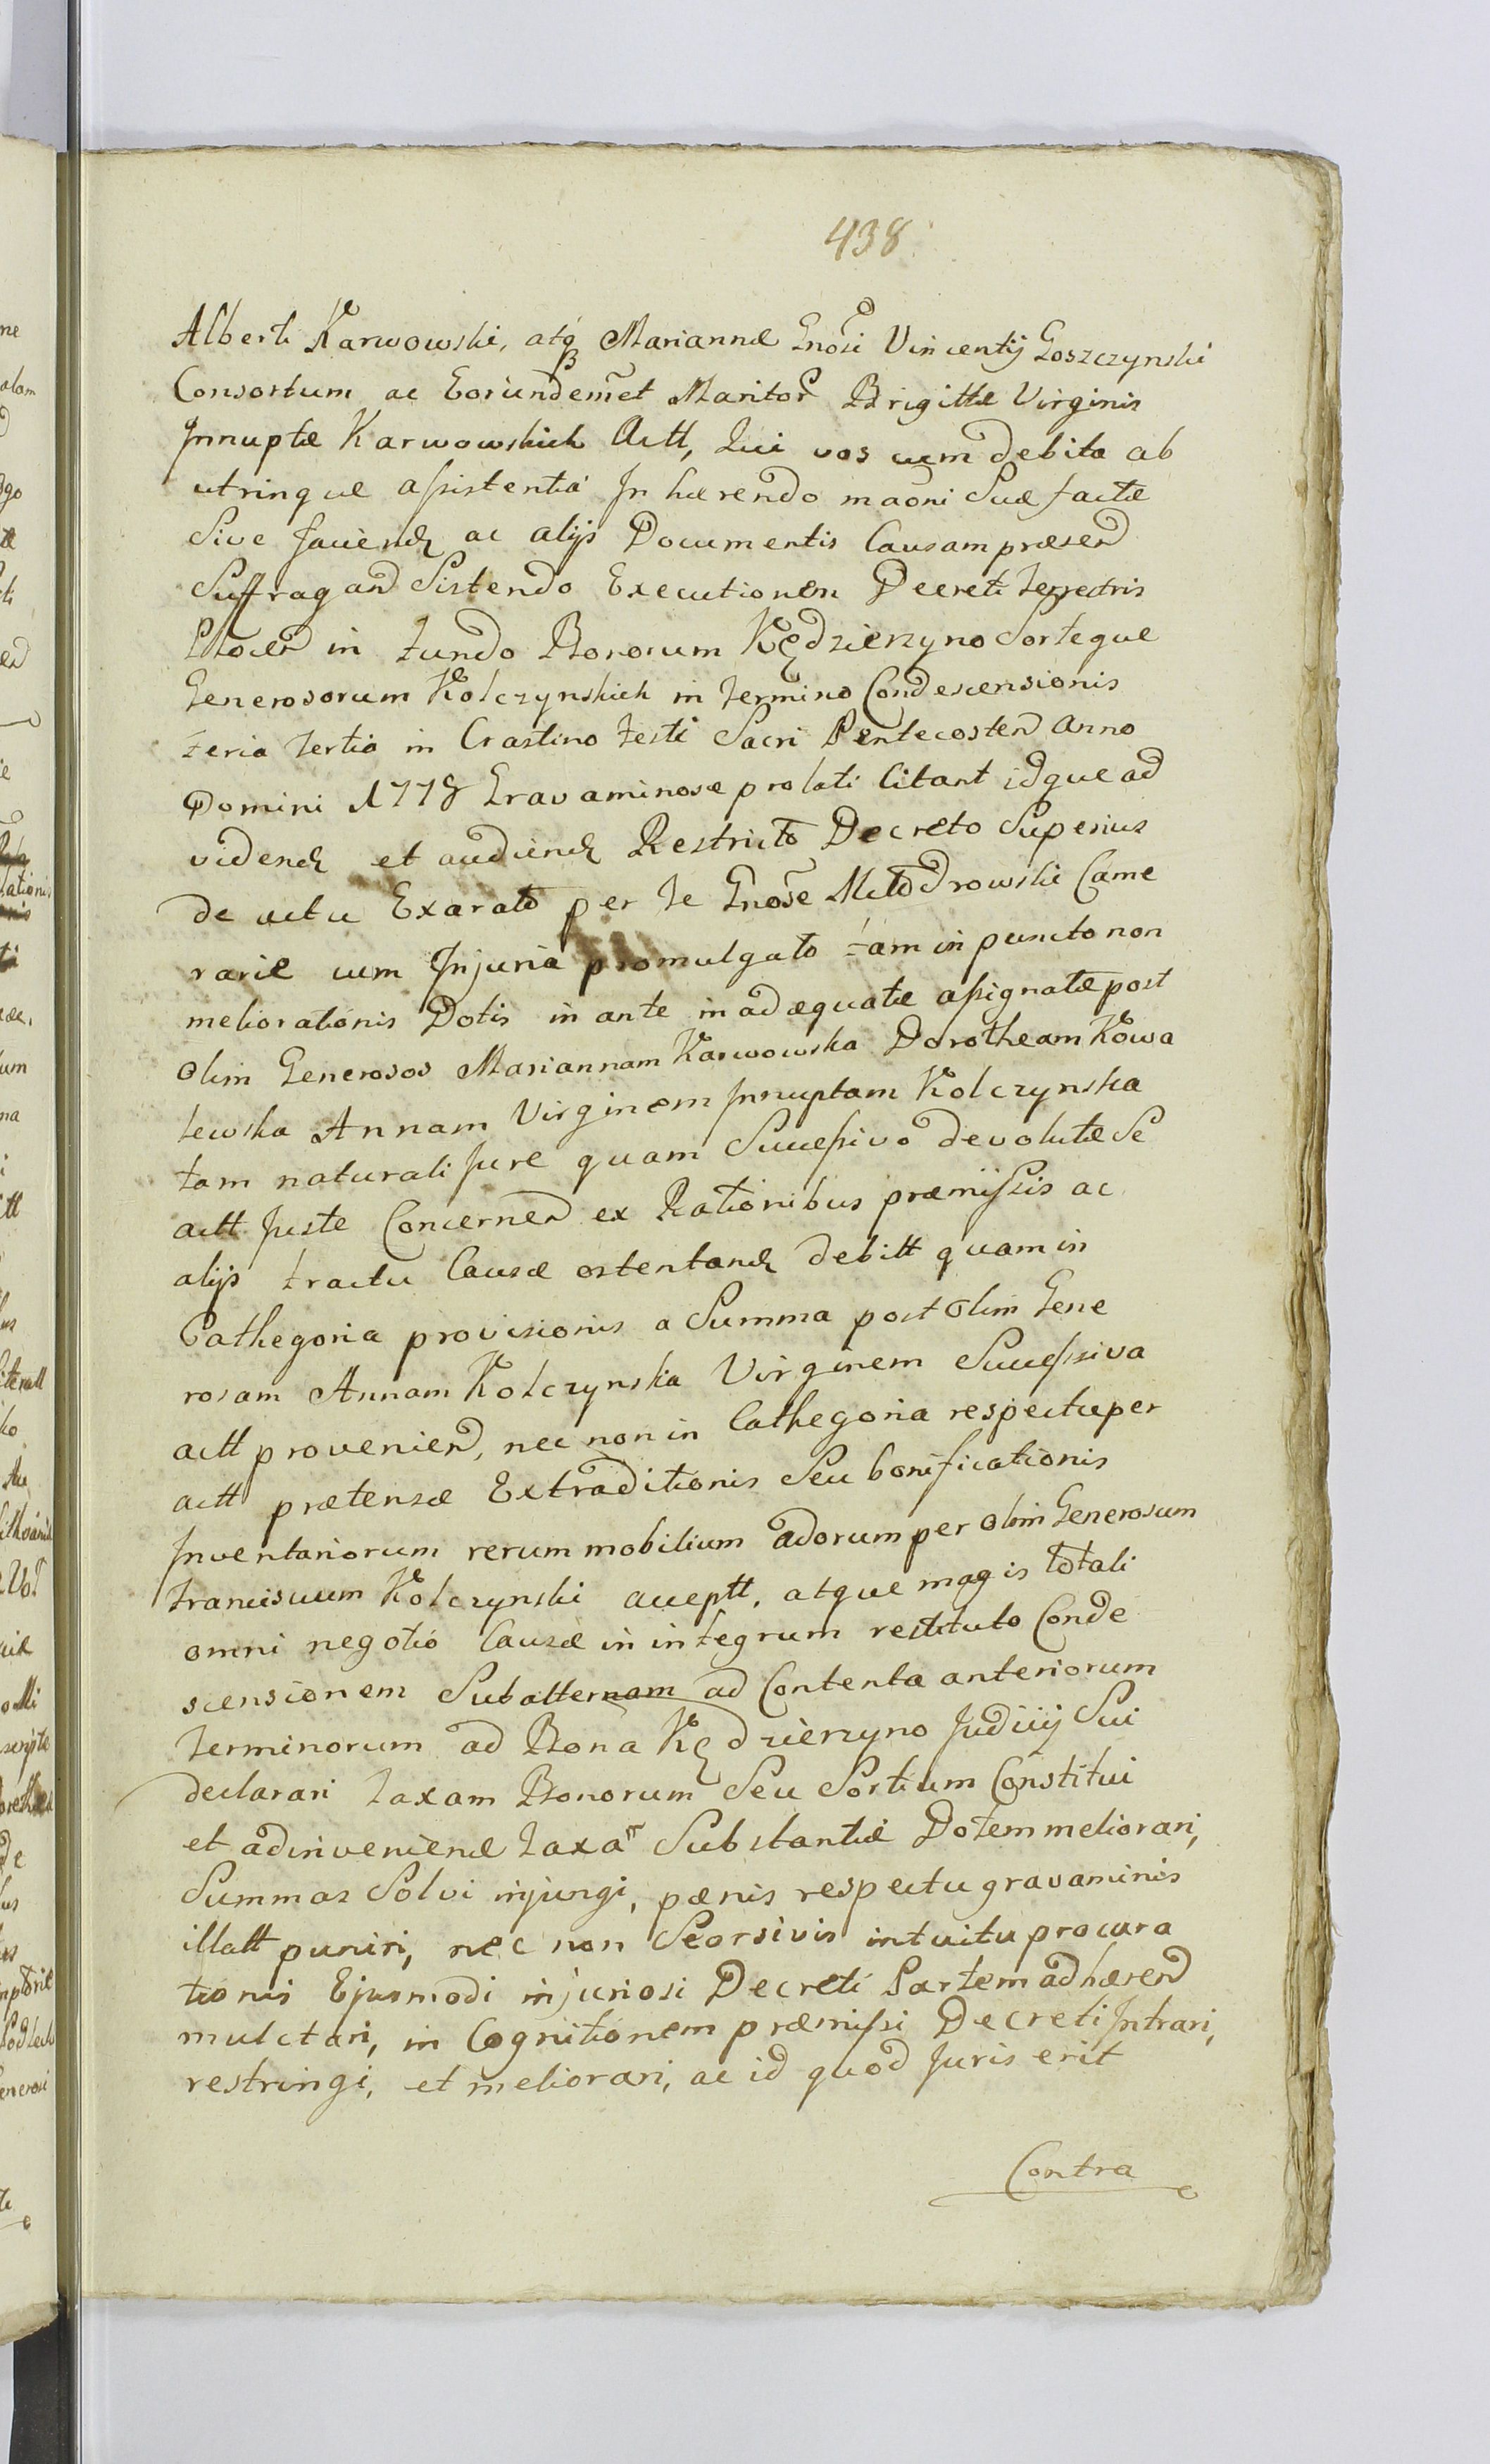 438
Alberti Karwowski, atq Mariannæ Gnosi Vincentij Goszczynski
Consortum ac Eorundemet Maritor Brigittæ Virginis
Innuptæ Karwowskich Actt, Qui vos cum debita ab
utrinque assistentia In hærendo maoni Suæ factæ
Sive faciend ac alijs Documentis Causam præsen
Suffragan Sistendo Executionem Decreti Terrestris
in Fundo Bonorum Kędzierzyno Sorteque
Generosorum Kolczynskich in Termino Condescensionis
Feria Tertia in Crastino Festi Sacri Pentecosten Anno
Domini 1778 Gravaminose prolati Citant idque ad
vidend et audiend Restricto Decreto Superius
de actu Exarato per Te Gnose Młodrowski Came
rarie cum Injuria promulgato tam in puncto non
meliorationis Dotis in ante inadæquatæ assignatæ post
Olim Generosos Mariannam Karwowska Dorotheam Kowa
lewska Annam Virginem Innuptam Kolczynska
tam naturali Jure quam Successivo devolutæ Se
actt Juste Concernen ex Rationibus præmissis ac
alijs tractu Causæ ostentand debitt quam in
Cathegoria provisionis a Summa post Olim Gene
rosam Annam Kolczynska Virginem Successiva
actt provenien, nec non in Cathegoria respectu per
actt prætensæ Extraditionis Seu bonificationis
Inventariorum rerum mobilium adorum per Olim Generosum
Franciscum Kolczynski acceptt, atque magis totali
omni negotio Causæ in integrum restituto Conde
scensionem Subalternam ad Contenta anteriorum
Terminorum ad Bona Kędzierzyno Judicij Sui
declarari Taxam Bonorum Seu Sortium Constitui
et adinveniendæ Taxa Substantiæ Dotem meliorari,
Summas Solvi injungi, pænis respectu gravaminis
illatt puniri, nec non Seorsivis intuitu procura
tionis Ejusmodi injuriosi Decreti Partem adhæren
mulctari, in Cognitionem præmissi Decreti Intrari,
restringi, et meliorari, ac id quod Juris erit
Contra